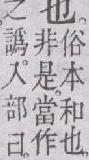 也。
俗本和也。
非是。當作
之譌。人部曰。